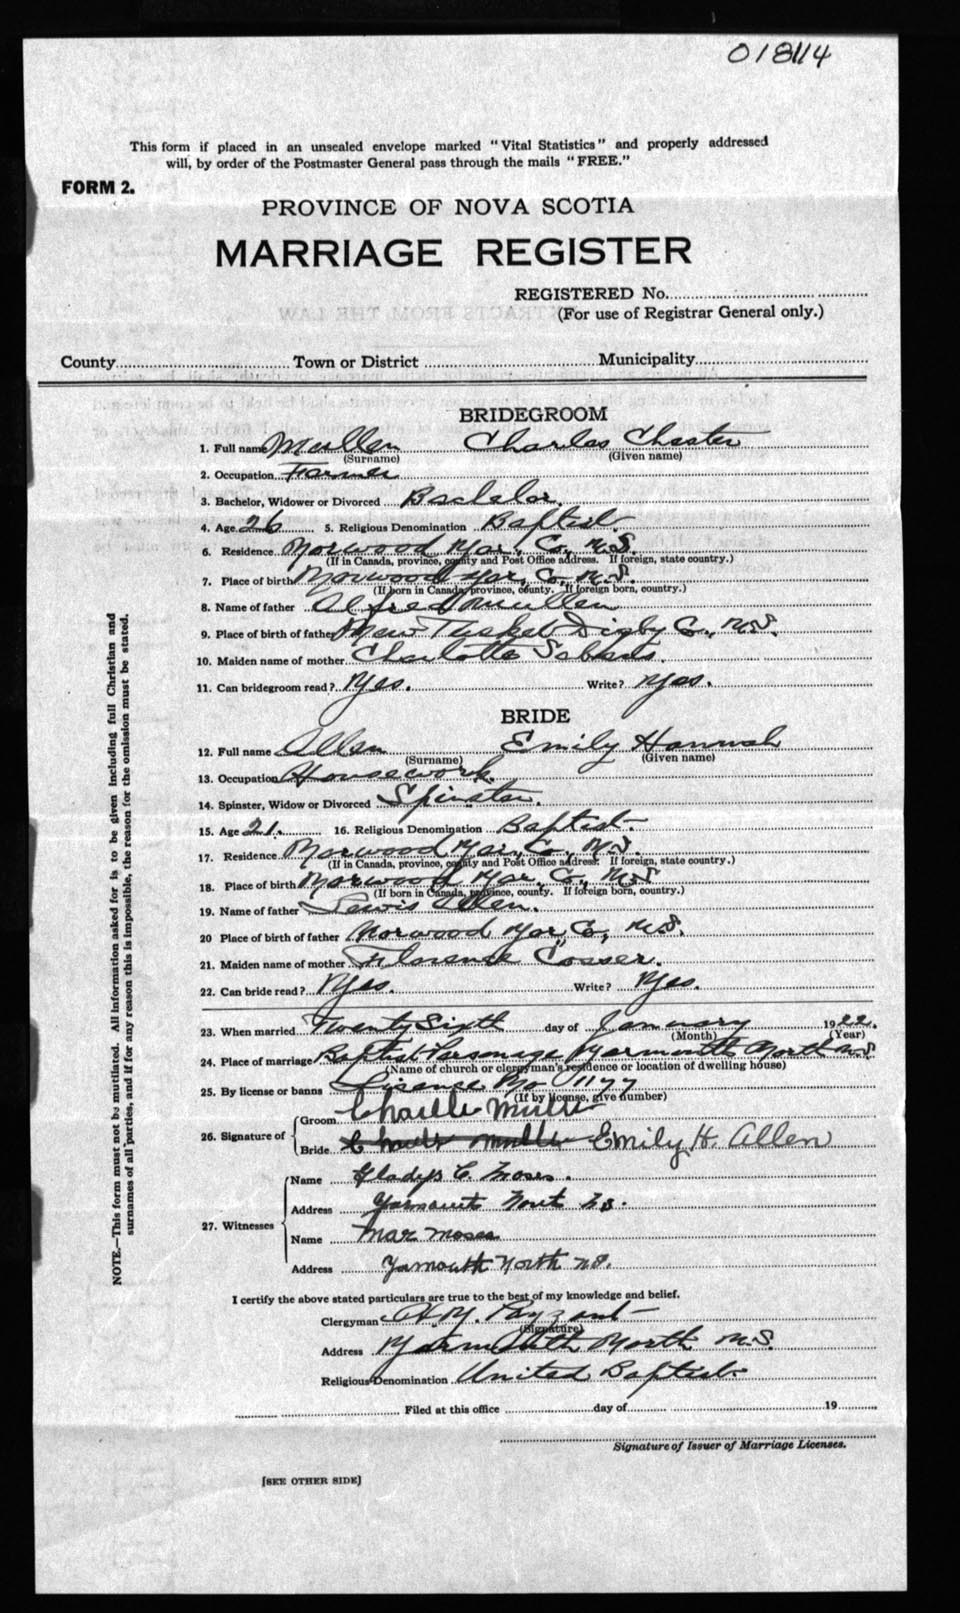 018114
This form if placed in an unsealed envelope marked "Vital Statistics" and properly addressed
will, by order of the Postmaster General pass through the mails "FREE."
FORM 2.
PROVINCE OF NOVA SCOTIA
MARRIAGE REGISTER
REGISTERED No.
(For use of Registrar General only.)
County Town or District Municipality
BRIDEGROOM
1. Full name Mullen Charles Chester
(Surname) (Given name)
2. Occupation Farmer
3. Bachelor, Widower or Divorced Bachelor.
4. Age 26 5. Religious Denomination Baptist.
6. Residence Norwood Yar. Co., N.S.
(If in Canada, province, county and Post Office address. If foreign, state country.)
7. Place of birth Norwood Yar, Co., N.S.
(If born in Canada, province, county. If foreign born, country.)
8. Name of father Alfred Mullen
9. Place of birth of father New Tusket Digby Co., N.S.
10. Maiden name of mother Charlotte Sabeans.
11. Can bridegroom read? Yes. Write? Yes.
BRIDE
12. Full name Allen Emily Hannah
(Surname) (Given name)
13. Occupation Housework.
14. Spinster, Widow or Divorced Spinster.
15. Age 21. 16. Religious Denomination Baptist.
17. Residence Norwood Yar, Co., N.S.
(If in Canada, province, county and Post Office address. If foreign, state country.)
18. Place of birth Norwood Yar, Co., N.S
(If born in Canada, province, county. If foreign born, country.)
19. Name of father Lewis Allen.
20 Place of birth of father Norwood Yar, Co., N.S.
21. Maiden name of mother Florence Cosser.
22. Can bride read? Yes. Write? Yes.
23. When married Twenty Sixth day of January 1922.
(Month) (Year)
24. Place of marriage Baptist Parsonage Yarmouth North N.S
(Name of church or clergyman's residence or location of dwelling house)
25. By license or banns License No 1177
(If by license, give number)
26. Signature of
Groom Charlle Mulle
Bride Emily H. Allen
27. Witnesses
Name Gladys C. Moses.
Address Yarmouth North N.S.
Name Mar Moses
Address Yarmouth North N.S.
I certify the above stated particulars are true to the best of my knowledge and belief.
Clergyman Payzant
(Signature)
Address Yarmouth North N.S.
Religious Denomination United Baptist.
Filed at this office day of 19
Signature of Issuer of Marriage Licenses.
[SEE OTHER SIDE]
NOTE.—This form must not be mutilated. All information asked for is to be given including full Christian and
surnames of all parties, and if for any reason this is impossible, the reason for the omission must be stated.